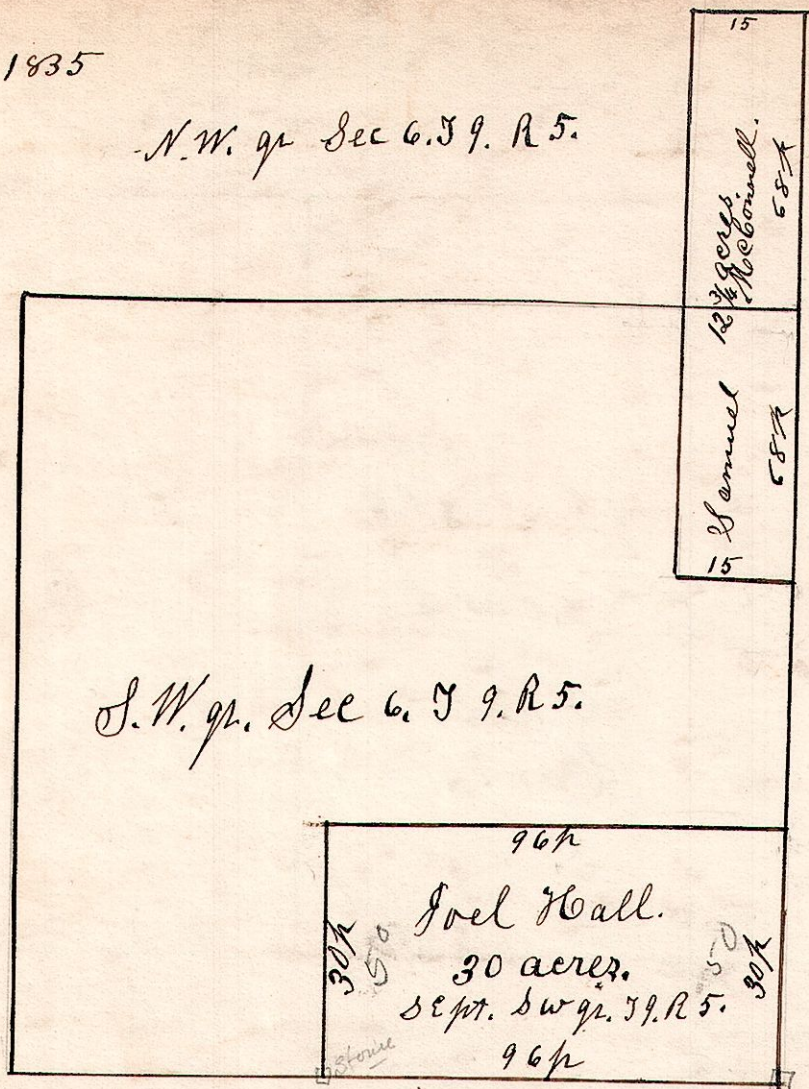 1835
N.W. qr Sec 6. T 9. R 5.
15
Samuel McConnell.
12 3/4 acres.
68p
68p
15
S.W. qr. Sec 6. T 9. R 5.
96p
Joel Hall.
30 acres.
SE pt. SW qr. T 9. R 5.
96p
30p
50
50
30p
Stone